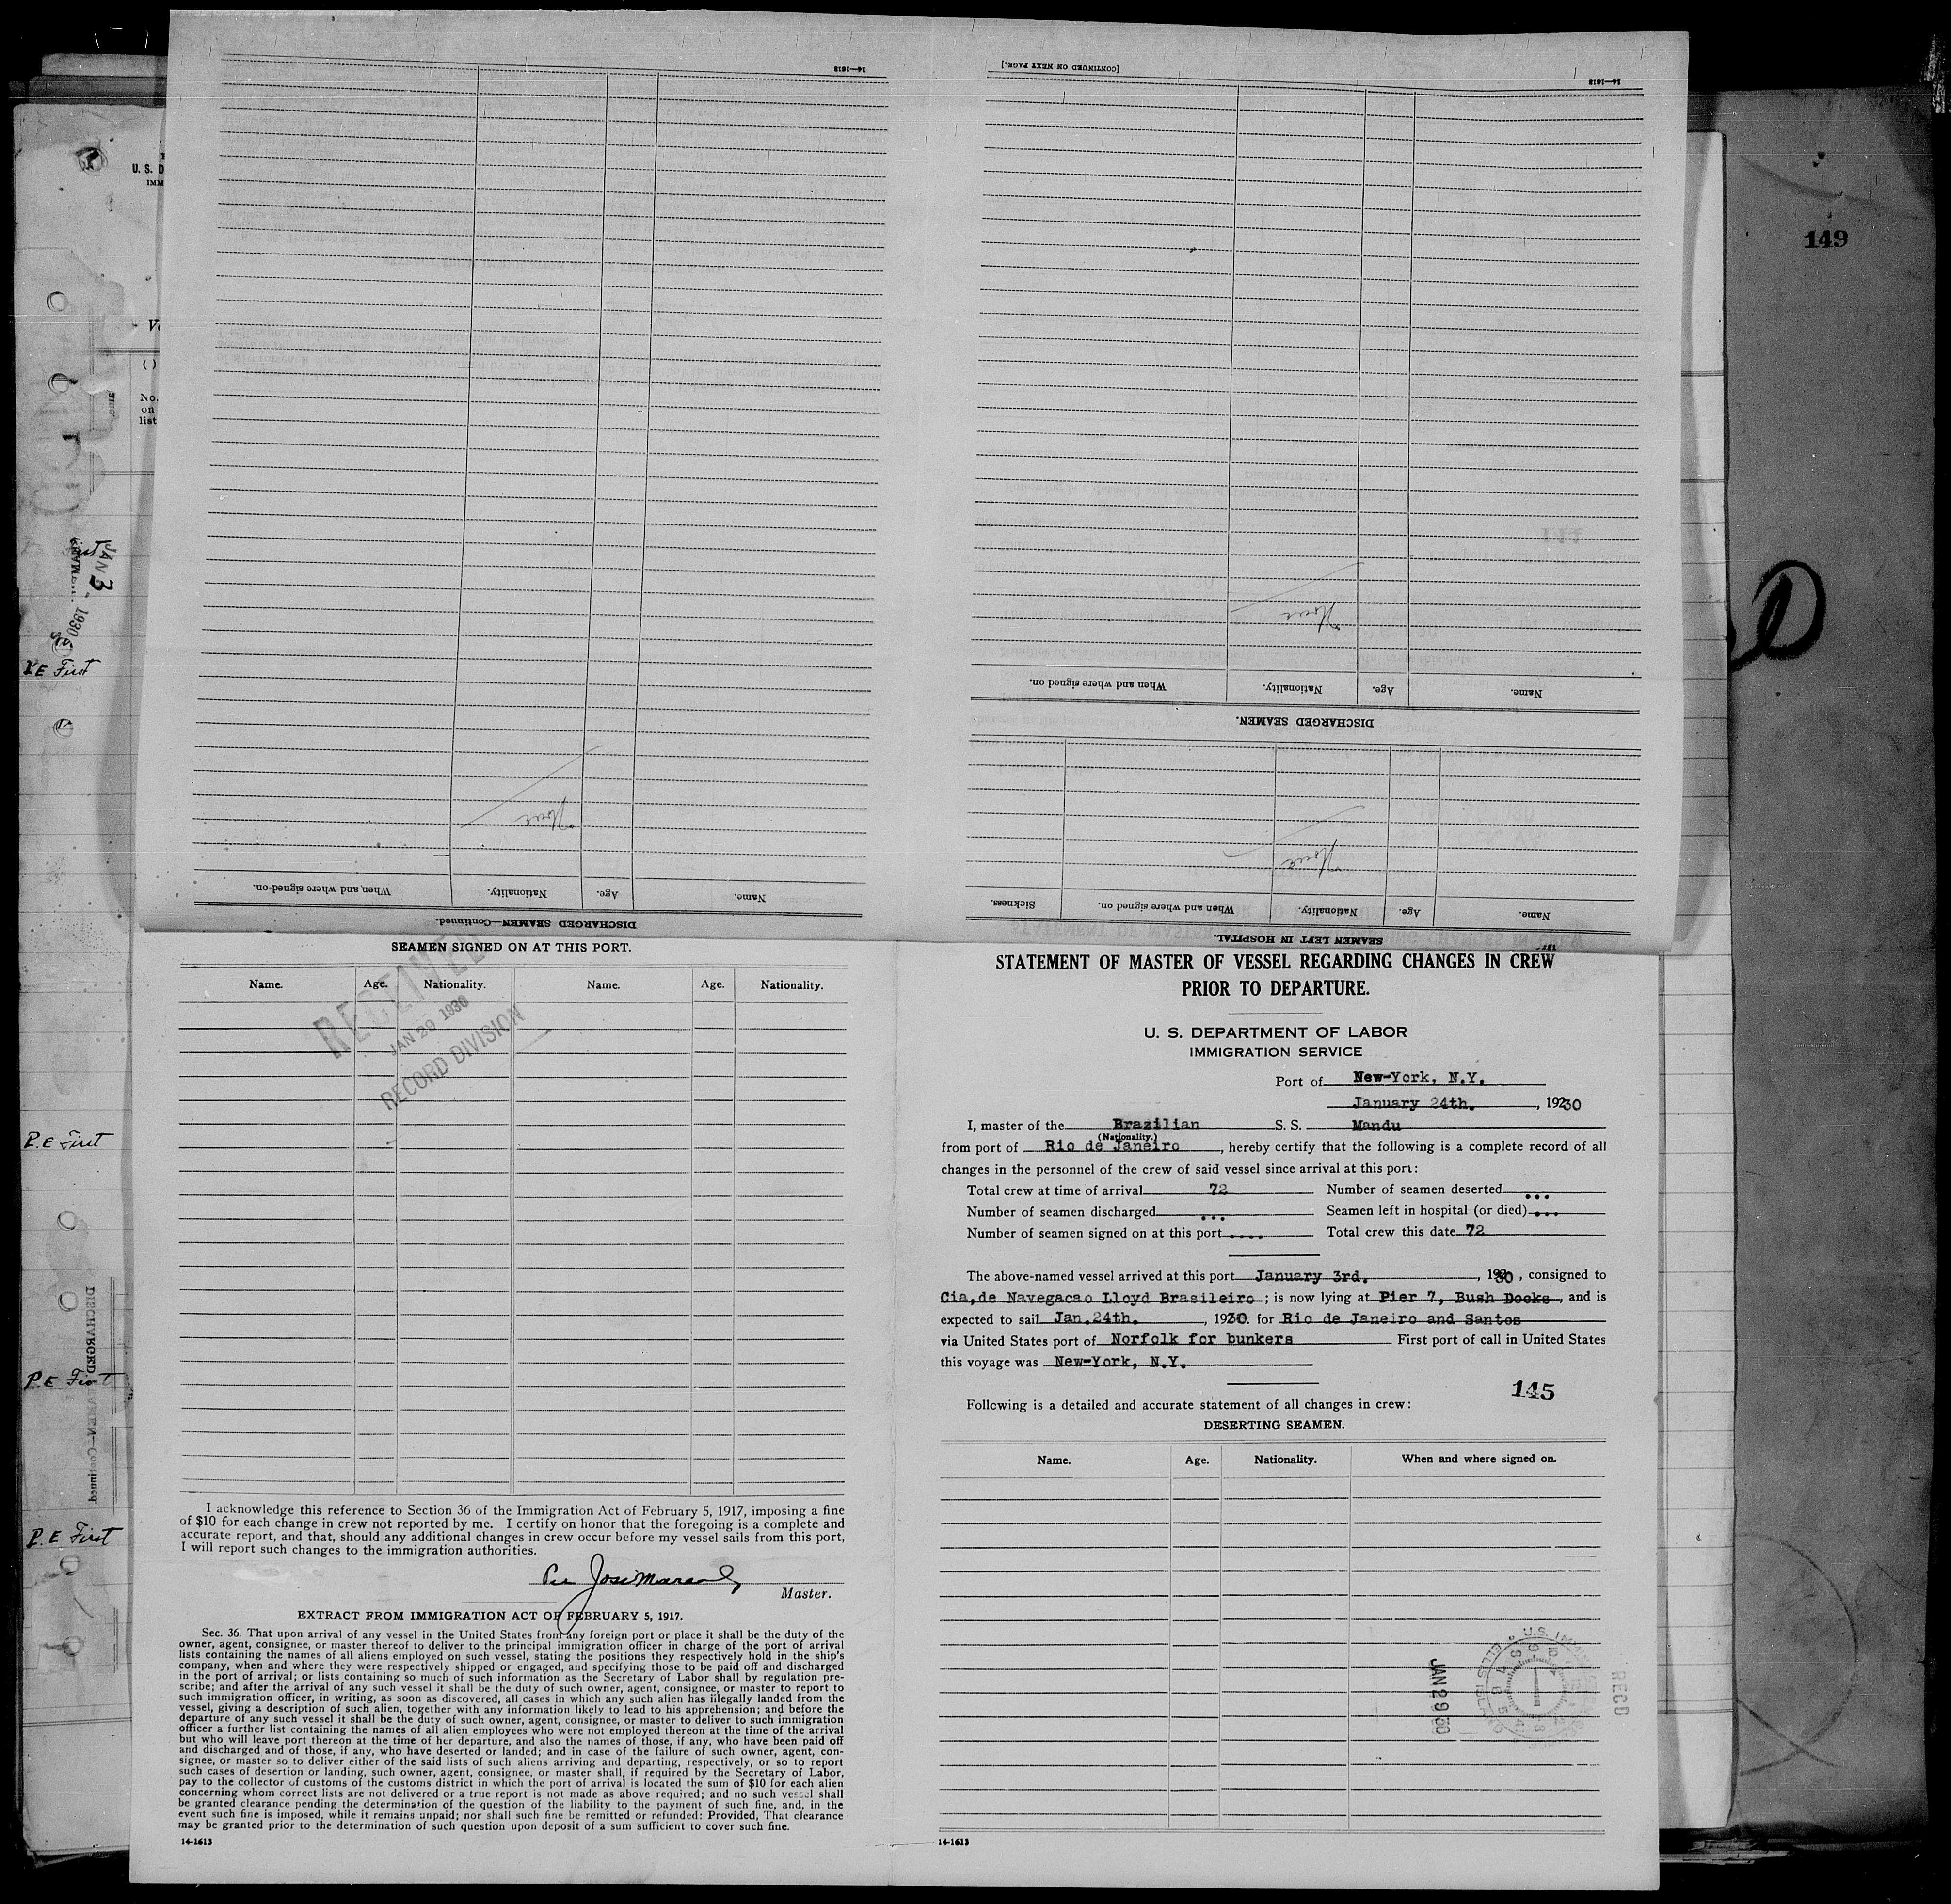 149
U. S. D
IMM
No.
on
list
JAN 3 - 1930
P.E First
P.E First
P.E First
P.E First
DISCHARGED SEAMEN—Continued.
14—1613
DISCHARGED SEAMEN—Continued.
Name. Age. Nationality. When and where signed on.
None
[CONTINUED ON NEXT PAGE.]
14—1613
SEAMEN LEFT IN HOSPITAL.
Name. Age. Nationality. When and where signed on. Sickness.
None
DISCHARGED SEAMEN.
Name. Age. Nationality. When and where signed on.
None
SEAMEN SIGNED ON AT THIS PORT.
Name. Age. Nationality. Name. Age. Nationality.
RECEIVED
JAN 29 1930
RECORD DIVISION
I acknowledge this reference to Section 36 of the Immigration Act of February 5, 1917, imposing a fine
of $10 for each change in crew not reported by me. I certify on honor that the foregoing is a complete and
accurate report, and that, should any additional changes in crew occur before my vessel sails from this port,
I will report such changes to the immigration authorities.
Master.
EXTRACT FROM IMMIGRATION ACT OF FEBRUARY 5, 1917.
Sec. 36. That upon arrival of any vessel in the United States from any foreign port or place it shall be the duty of the
owner, agent, consignee, or master thereof to deliver to the principal immigration officer in charge of the port of arrival
lists containing the names of all aliens employed on such vessel, stating the positions they respectively hold in the ship's
company, when and where they were respectively shipped or engaged, and specifying those to be paid off and discharged
in the port of arrival; or lists containing so much of such information as the Secretary of Labor shall by regulation pre-
scribe; and after the arrival of any such vessel it shall be the duty of such owner, agent, consignee, or master to report to
such immigration officer, in writing, as soon as discovered, all cases in which any such alien has illegally landed from the
vessel, giving a description of such alien, together with any information likely to lead to his apprehension; and before the
departure of any such vessel it shall be the duty of such owner, agent, consignee, or master to deliver to such immigration
officer a further list containing the names of all alien employees who were not employed thereon at the time of the arrival
but who will leave port thereon at the time of her departure, and also the names of those, if any, who have been paid off
and discharged and of those, if any, who have deserted or landed; and in case of the failure of such owner, agent, con-
signee, or master so to deliver either of the said lists of such aliens arriving and departing, respectively, or so to report
such cases of desertion or landing, such owner, agent, consignee, or master shall, if required by the Secretary of Labor,
pay to the collector of customs of the customs district in which the port of arrival is located the sum of $10 for each alien
concerning whom correct lists are not delivered or a true report is not made as above required; and no such vessel shall
be granted clearance pending the determination of the question of the liability to the payment of such fine, and, in the
event such fine is imposed, while it remains unpaid; nor shall such fine be remitted or refunded: Provided, That clearance
may be granted prior to the determination of such question upon deposit of a sum sufficient to cover such fine.
14-1613
STATEMENT OF MASTER OF VESSEL REGARDING CHANGES IN CREW
PRIOR TO DEPARTURE.
U. S. DEPARTMENT OF LABOR
IMMIGRATION SERVICE
Port of New-York, N.Y.
January 24th. , 1930
I, master of the Brazilian S. S. Mandu
(Nationality.)
from port of Rio de Janeiro , hereby certify that the following is a complete record of all
changes in the personnel of the crew of said vessel since arrival at this port:
Total crew at time of arrival 72 Number of seamen deserted ...
Number of seamen discharged ... Seamen left in hospital (or died) ....
Number of seamen signed on at this port ..... Total crew this date 72
The above-named vessel arrived at this port January 3rd. , 1930 , consigned to
Cia,de Navegacao Lloyd Brasileiro ; is now lying at Pier 7, Bush Docks , and is
expected to sail Jan.24th. , 1930. for Rio de Janeiro and Santos
via United States port of Norfolk for bunkers First port of call in United States
this voyage was New-York, N.Y.
145
Following is a detailed and accurate statement of all changes in crew:
DESERTING SEAMEN.
Name. Age. Nationality. When and where signed on.
JAN 29 30
REC'D
14-1613